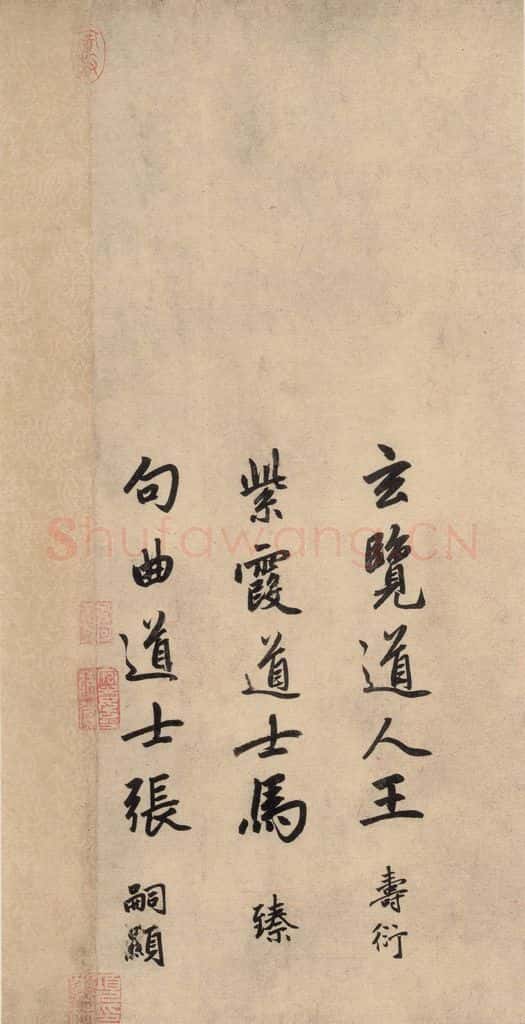 玄覽道人王壽衍
紫霞道士馬臻
句曲道士張嗣顯
Shufawang.CN